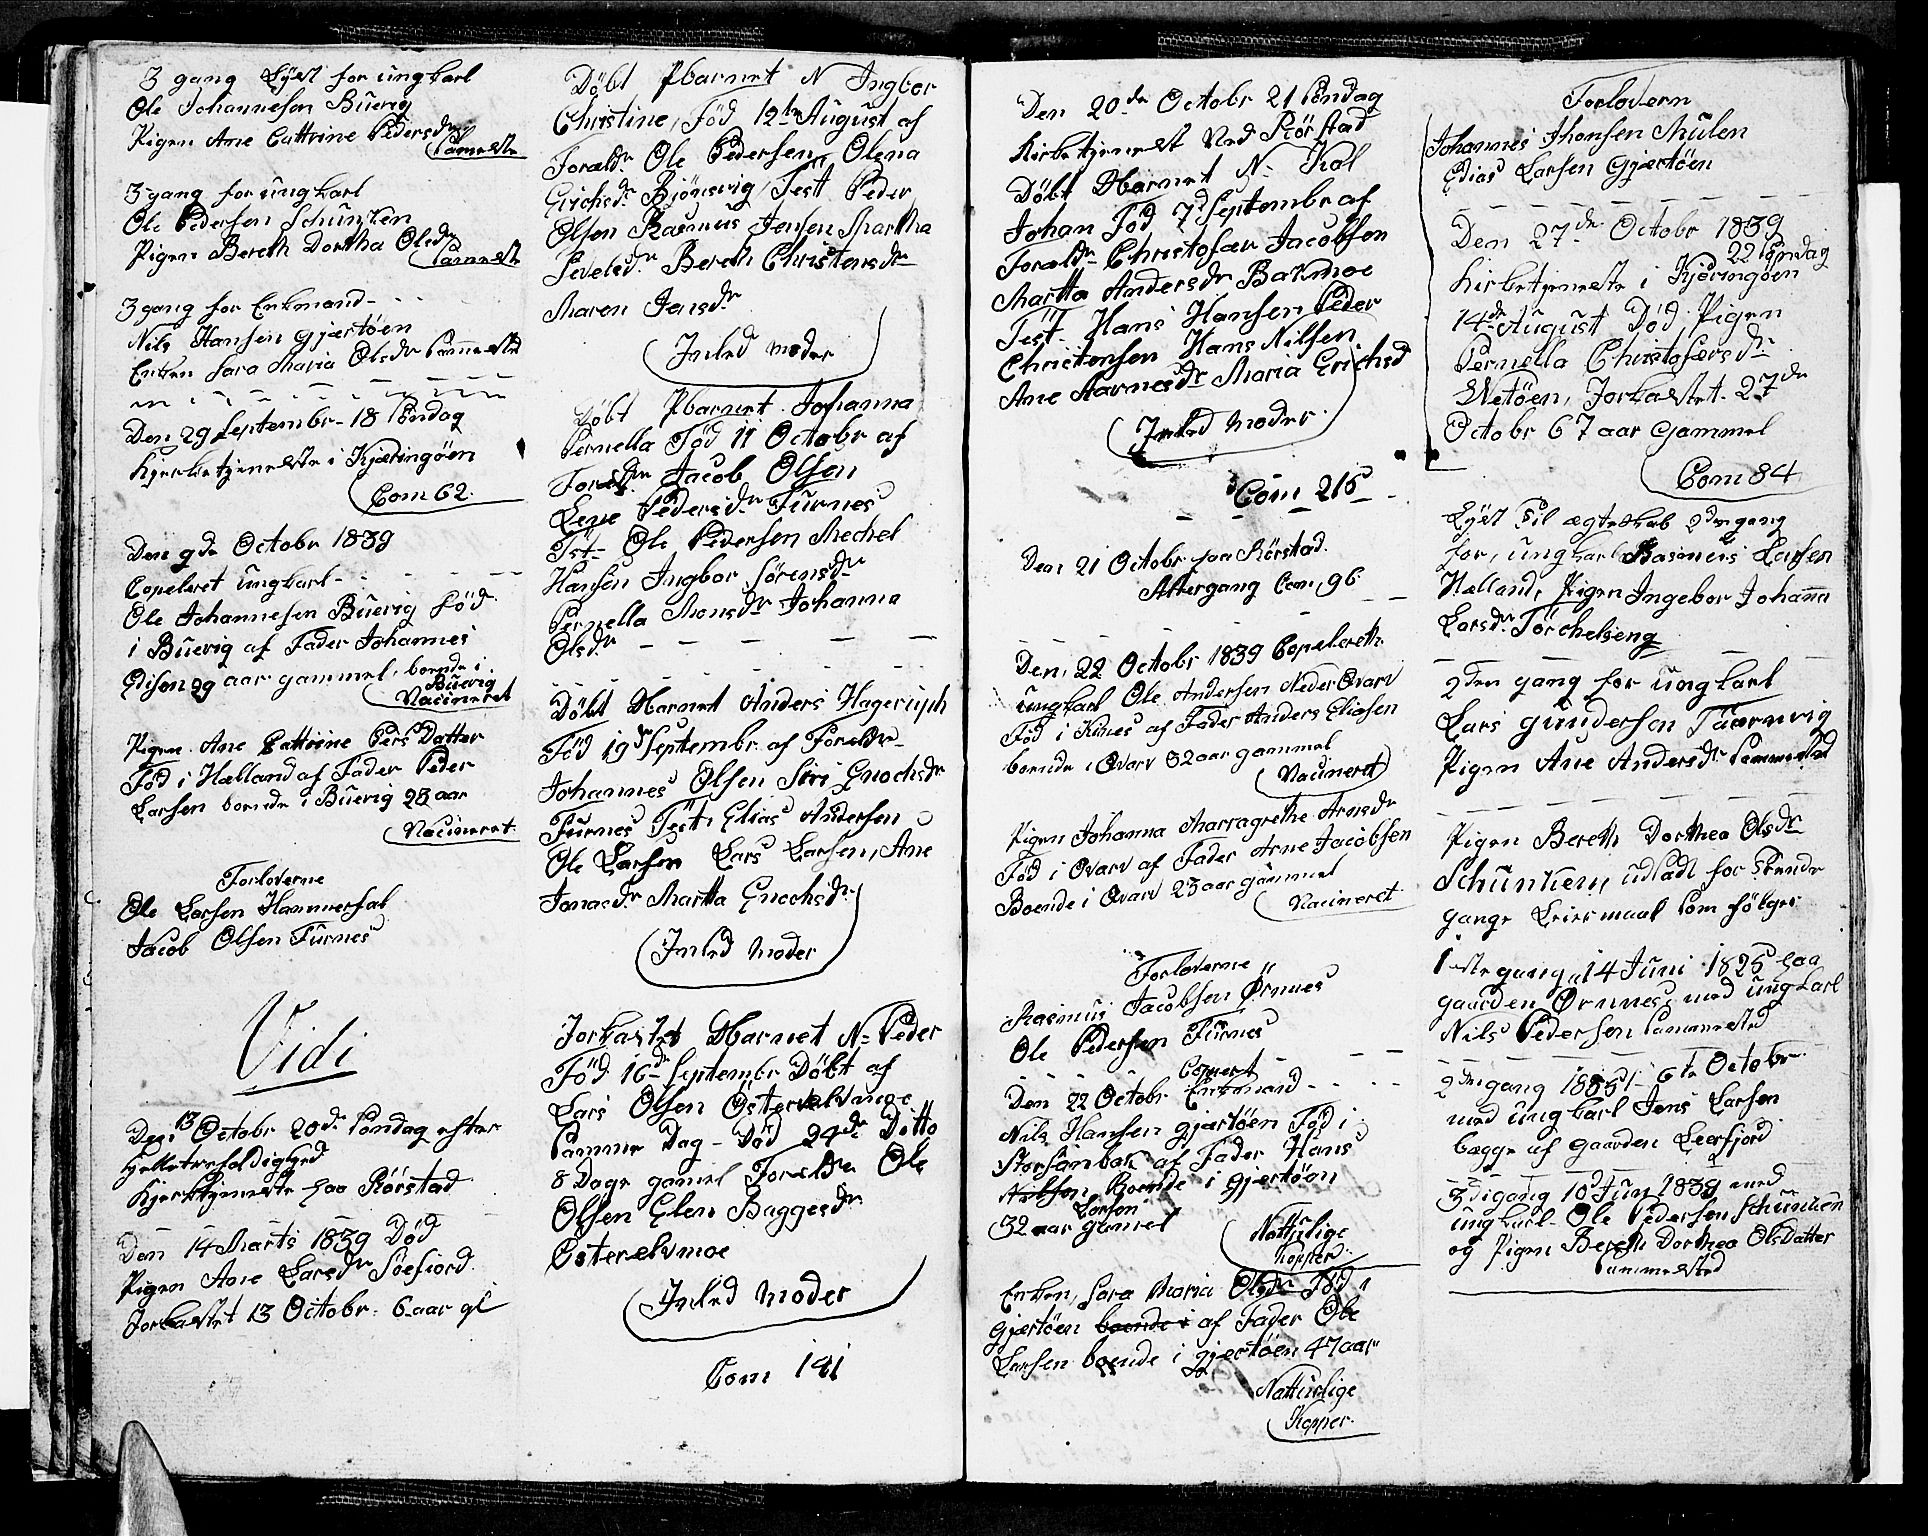 3 gang Lyst for ungkarl
Ole Johannesen Buevig
Pigen Ane Cattrine Pedersdr
Sammeste
3 gang for ungkarl
Ole Pedersen Schunken
Pigen Bereth Dorthea Olsdr
Sammeste
3 gang for Enkmand
Nils Hansen Gjærtöen
Enken Sara Maria Olsdr Sammested
Den 29 Septembr 18 Söndag
Kjerketjeneste i Kjæringöen
Com 62.
Den 9de Octobr 1839
Copeleret ungkarl
Ole Johannesen Buevig Föd
i Buevig af Fader Johannes
29 aar gammel, boende i
Buevig
Vacineret
Pigen Ane Cattrine Pers Datter
Föd i Hælland af Fader Peder
Larsen boende i Buevig 28 aar
Vacineret
Forloverne
Ole Larsen Hammerfal
Jacob Olsen Furnes
Vidi
Den 13 Octobr 20de Söndag efter
Kjerketjeneste paa Rörstad
Den 14 Marts 1839 Död
Pigen Ane Larsdr Söefiord
Jorkastet 13 Octobr 6 aar gl
Döbt Pbarnet N Ingbor
Christine, Föd 12te August af
Foreldr Ole Pedersen, Olena
Grichsdr Björsvig, Test Peder
Olsen Rasmus Jensen Martha
Bereth Christensdr
Maren Jensdr
Inled moder
Döbt Pbarnet Johanna
Pernella Föd 11 Octobr af
Foreldre Jacob Olsen
Lene Pedersdr Furnes
Test Ole Pedersen Mechel
Hansen Ingbor Sörensdr
Pernella Monsdr Johanna
Olsdr
Döbt Dbarnet Anders Hageruph
Föd 19d Septembr af Foreldr
Johannes Olsen Siri Enochsdr
Furnes Test Elias Andersen
Ole Larsen Lars Larsen, Ane
Jonasdr Martta Enochsdr
Inled moder
Jorkastet Dbarnet N Peder
Föd 16de Septembr Döbt af
Lars Olsen
Samme Dag - Död 24de Ditto
8 Dage gamel Foreldre Ole
Olsen Elen Baggesdr
Inled moder
Com 141
Den 20de Octobr 21 Söndag
Kirketjeneste ved Rörstad
Döbt Dbarnet N Kol
Johan Föd 7d Septembr af
Foreldr Christofær Jacobsen
Martta Andersdr Bakmoe
Test Hans Hansen Peder
Christensen Hans Nilsen
Ane Aarnesdr Maria Grichsd
Inled moder
Com 216
Den 21 Octobr paa Rörstad.
Altergang Com 96
Den 22 Octobr 1839 Copelereth
ungkarl Ole Andersen Neder Qvarv
Föd i Kines af Fader Anders Eliasen
boende i Qvarv 32 aar gammel
Vacineret
Pigen Johanna Marragrethe Arnsdr
Föd i Qvarv af Fader Arne Jacobsen
Boende i Qvarv 23 aar gammel
Vacineret
Forloverne
Rasmus Jacobsen Örnnes
Ole Pedersen Furnes
Den 22 Octobr Enkmand
Nils Hansen gjærtöen Föd i
af Fader Hans
Nielsen Boende i gjertöen
Larsen
32 aar gamel
Nattulige
kopper
Enken, Sara Maria Olsdr Föd i
Gjærtöen boende i af Fader Ole
Larsen boende i gjærtöen 47 aar
Nattulige
Kopper.
Forlovern
Johannes Jhansen Mulen
Edias Larsen Gjærtöen
Den 27de Octobr 1839
22 Söndag
Kirketjeneste i Kjæringöen
14de August Död, Pigen
Pernella Christofærsdr
Jorkastet 27de
Octobr 67 aar gammel
Com 84
Lyst til ægteskab 2den gang
for, ungkarl Rasmus Larsen
Hælland, Pigen Ingebor Johanna
Larsdr Torchelseng
2den gang for ungkarl
Lars Gundersen Taarnvig
Pigen Ane Andersdr Sammested
Pigen Bereth Dorthea Olsdr
Schunken, udladt for Trende
gange Leiermaal som fölger
1ste gang, 14 Juni 1825 paa
gaarden Ornnes, med ungkarl
Nils Pedersen Sammested
2den gang 1835 6te Octobr
med ungkarl Jens Larsen
begge af gaarden Leerfjord
3di gang 10d Juni 1839 med
ungkarl Ole Pedersen Schunken
og Pigen Bereth Dorthea OlsDatter
Sammested